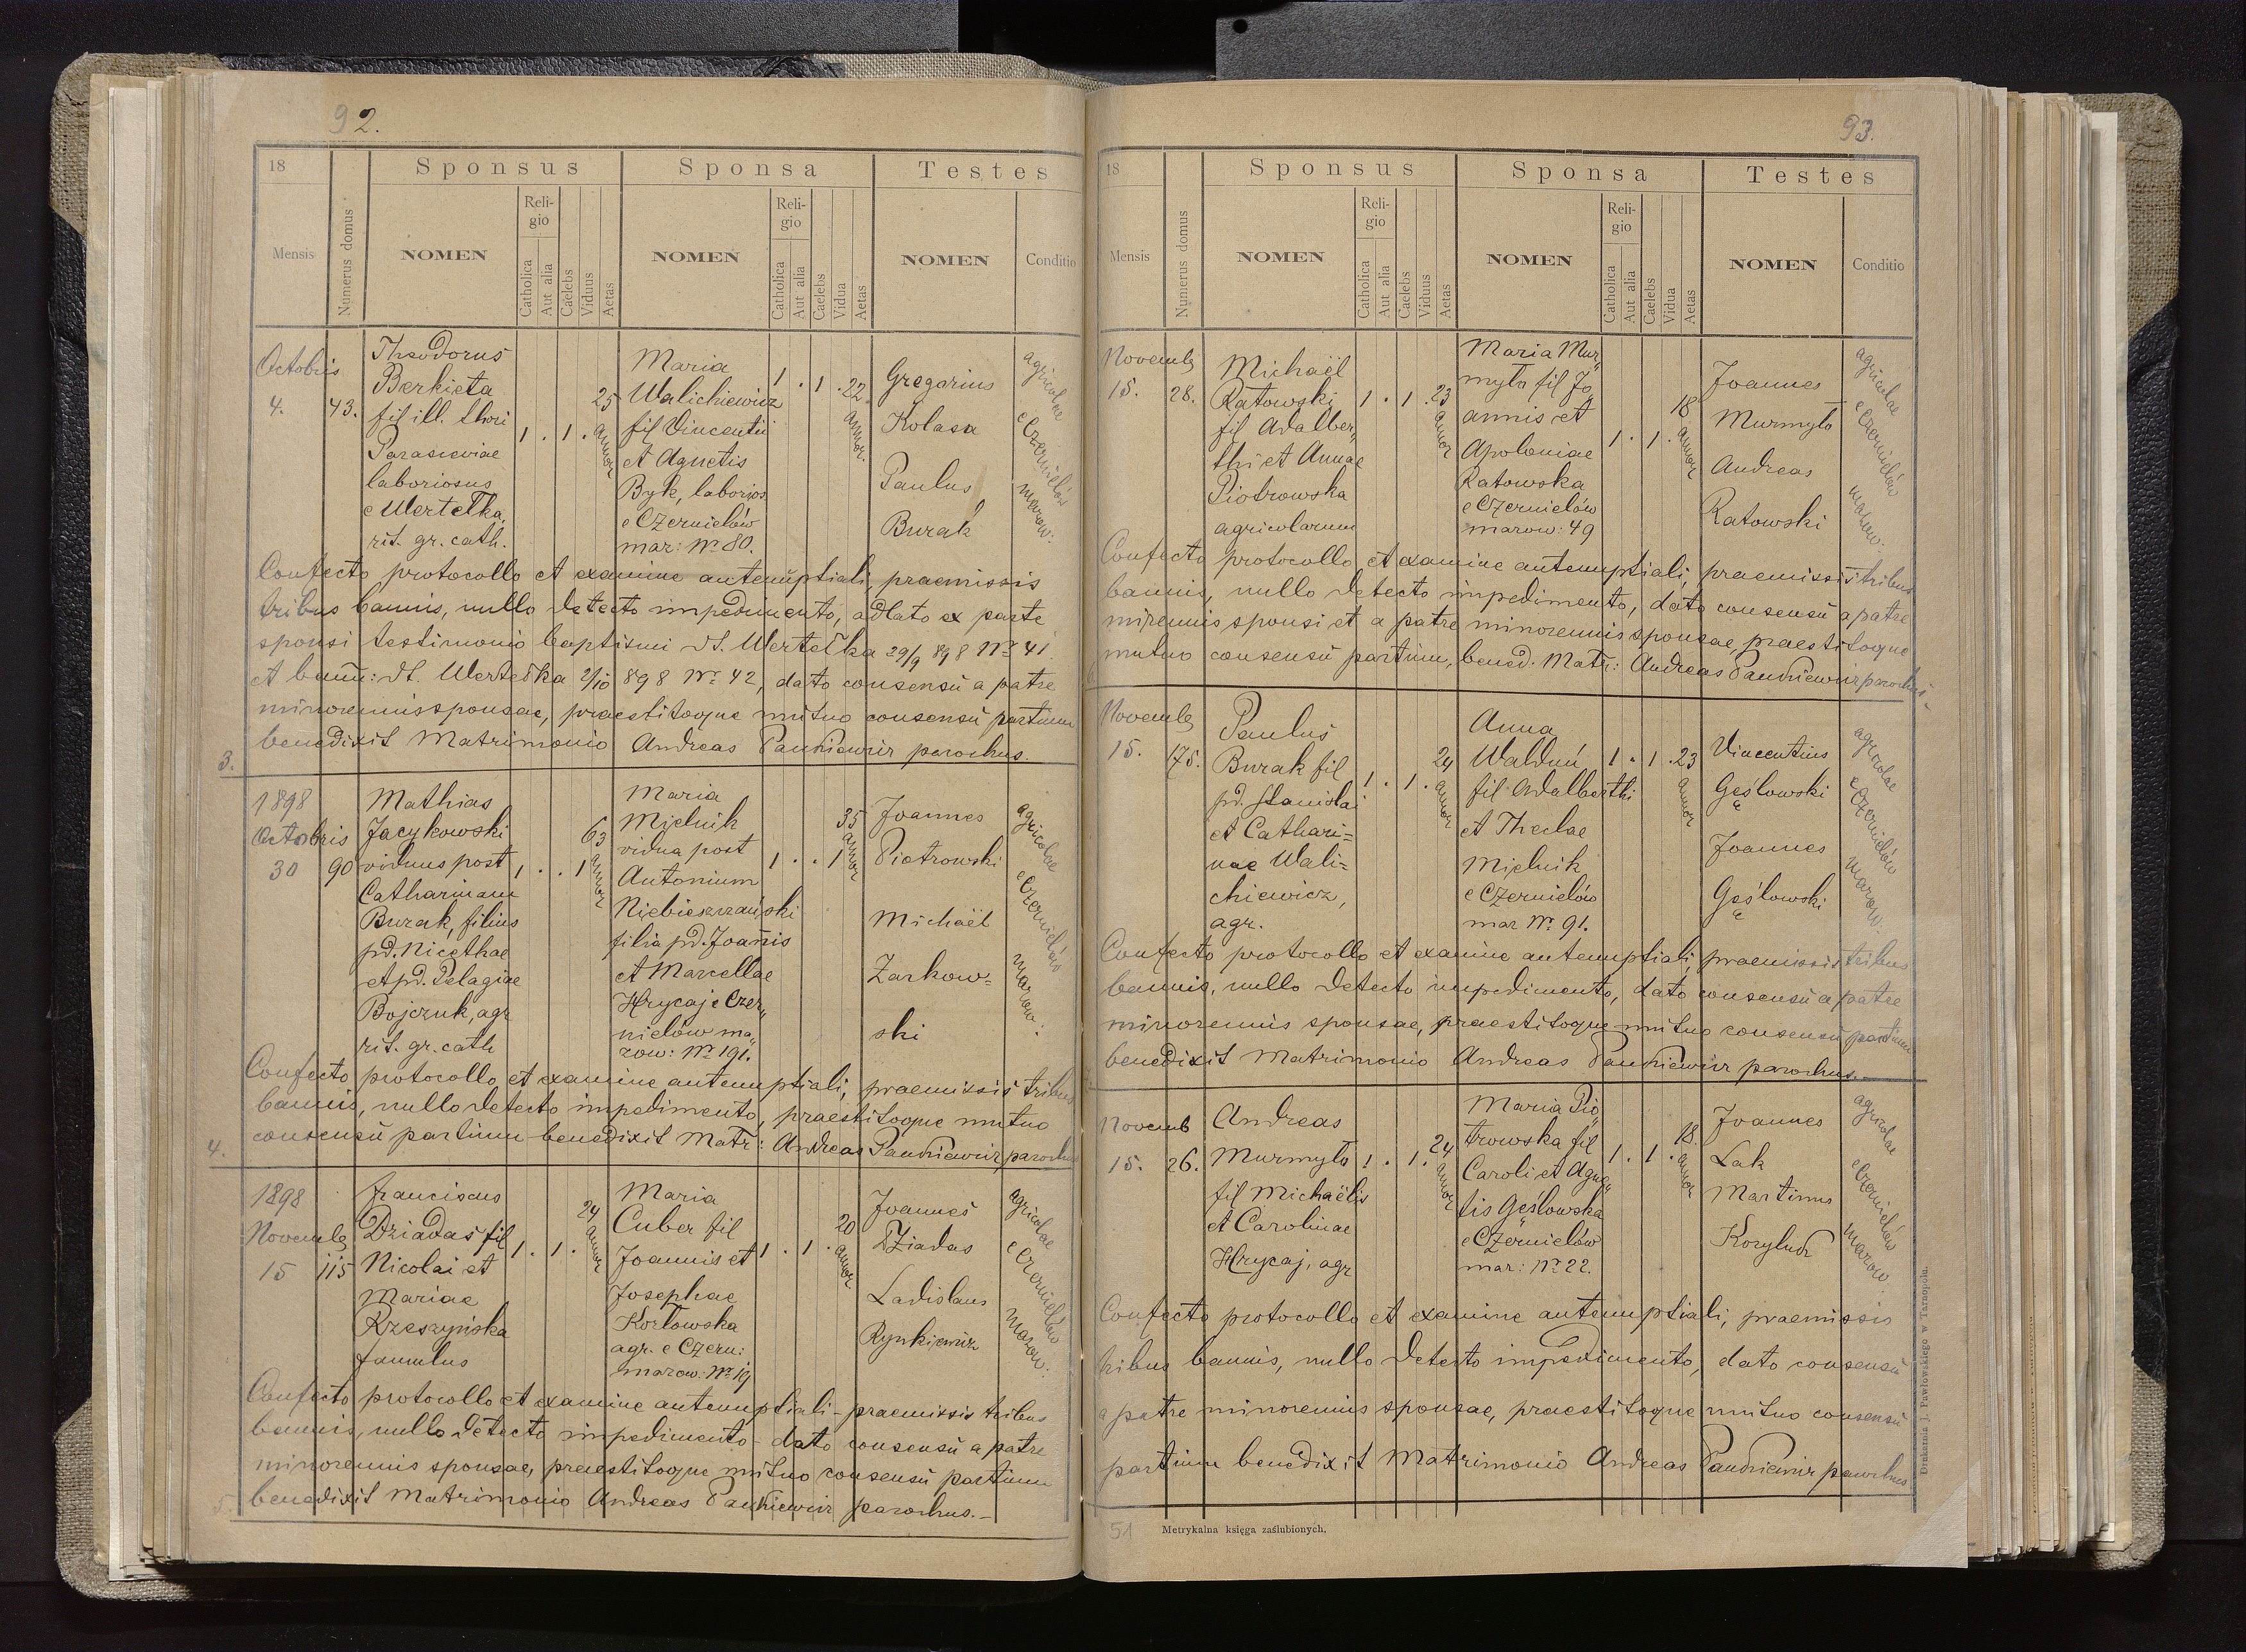 92.
18
Sponsus
Sponsa
Testes
Mensis
Numerus domus
NOMEN
Religio
Catholica
Aut alia
Caelebs
Viduus
Aetas
NOMEN
Religio
Catholica
Aut alia
Caelebs
Vidua
Aetas
NOMEN
Conditio
Octobris
4.
43.
Theodorus
Berkieta
fil ill. thori
Parasceviae
laboriosus
e Wertelka,
rit. gr. cath.
1 . 1 .
25
annor
Maria
Walichiewicz
fil Vincentii
et Agnetis
Byk, laborios
e Czernielów
mar: Nr 80.
1 . 1 .
22.
annor.
Gregorius
Kolasa
Paulus
Burak
agricolae
e Czernielów
mazow:
Confecto protocollo et examine antenuptiali, praemissis
tribus bannis, nullo detecto impedimento, adlato ex parte
sponsi testimonio baptismi dt. Wertelka 29/9 898 Nr 41
et bann: dt. Wertelka 2/10 898 Nr 42, dato consensu a patre
minorennis sponsae, praestitoque mutuo consensu partium
benedixit Matrimonio Andreas Pankiewicz parochus.
3.
1898
Octobris
30
90
Mathias
Jacykowski
viduus post
Catharinam
Burak, filius
pd. Nicethae
et pd. Pelagiae
Bojczuk, agr
rit. gr. cath
1 . . 1
63
annor
Maria
Mielnik
vidua post
Antonium
Niebieszczański
filia pd. Joannis
et Marcellae
Hrycaj e Czer„
nielów ma„
zow: Nr 191.
1 . . 1
35
annor
Joannes
Piotrowski
Michaël
Zarkow=
ski
agricolae
e Czernielów
mazow:
Confecto protocollo et examine antenuptiali, praemissis tribus
bannis, nullo detecto impedimento, praestitoque mutuo
consensu partium benedixit Matr: Andreas Pankiewicz parochus
4.
1898
Novemb
15
115
Franciscus
Dziadas fil
Nicolai et
Mariae
Krzeszyńska
famulus
1 . 1 .
24
annor
Maria
Cuber fil
Joannis et
Josephae
Kozlowska
agr. e Czern:
mazow. Nr 19
1 . 1 .
20
annor
Joannes
Dziadas
Ladislaus
Rynkiewicz
agricolae
e Czernielów
mazow:
Confecto protocollo et examine antenuptiali - praemissis tribus
bannis, nullo detecto impedimento - dato consensu a patre
minorennis sponsae, praestitoque mutuo consensu partium
benedixit Matrimonio Andreas Pankiewicz parochus. -
5.
93.
18
Sponsus
Sponsa
Testes
Mensis
Numerus domus
NOMEN
Religio
Catholica
Aut alia
Caelebs
Viduus
Aetas
NOMEN
Religio
Catholica
Aut alia
Caelebs
Vidua
Aetas
NOMEN
Conditio
Novemb
15.
28.
Michaël
Ratowski
fil Adalber„
thi et Annae
Piotrowska
agricolarum
1 . 1 .
23
annor
Maria Mur„
myło fil Jo„
annis et
Apoloniae
Ratowska
e Czernielów
mazow: 49
1 . 1 .
18
annor
Joannes
Murmyło
Andreas
Ratowski
agricolae
e Czernielów
mazow:
Confecto protocollo et examine antenuptiali, praemissis tribus
bannis, nullo detecto impedimento, dato consensu a patre
mirennis sponsi et a patre minorennis sponsae, praestitoque
mutuo consensu partium, bened. Matr: Andreas Pankiewicz parochus
Novemb
15.
175.
Paulus
Burak fil
pd. Stanislai
et Cathari=
nae Wali=
chiewicz,
agr.
1 . 1 .
24
annor
Anna
Walduń
fil Adalberthi
et Theclae
Mielnik
e Czernielów
mar Nr 91.
1 . 1 .
23
annor
Vincentius
Gęślowski
Joannes
Gęślowski
agricolae
e Czernielów
mazow:
Confecto protocollo et examine antenuptiali, praemissis tribus
bannis, nullo detecto impedimento, dato consensu a patre
minorennis sponsae, praestitoque mutuo consensu partium
benedixit Matrimonio Andreas Pankiewicz parochus. -
Novemb
15.
26.
Andreas
Murmyło
fil Michaëlis
et Carolinae
Hrycaj, agr
1 . 1 .
24
annor
Maria Pio„
trowska fil
Caroli et Agne„
tis Gęślowska
e Czernielów
mar: Nr 22.
1 . 1 .
18.
annor
Joannes
Lak
Martinus
Koryluk
agricolae
e Czernielów
mazow:
Confecto protocollo et examine antenuptiali, praemissis
tribus bannis, nullo detecto impedimento, dato consensu
a patre minorennis sponsae, praestitoque mutuo consensu
partium benedixit Matrimonio Andreas Pankiewicz parochus
51
Metrykalna księga zaślubionych.
Drukarnia J. Pawłowskiego w Tarnopolu.